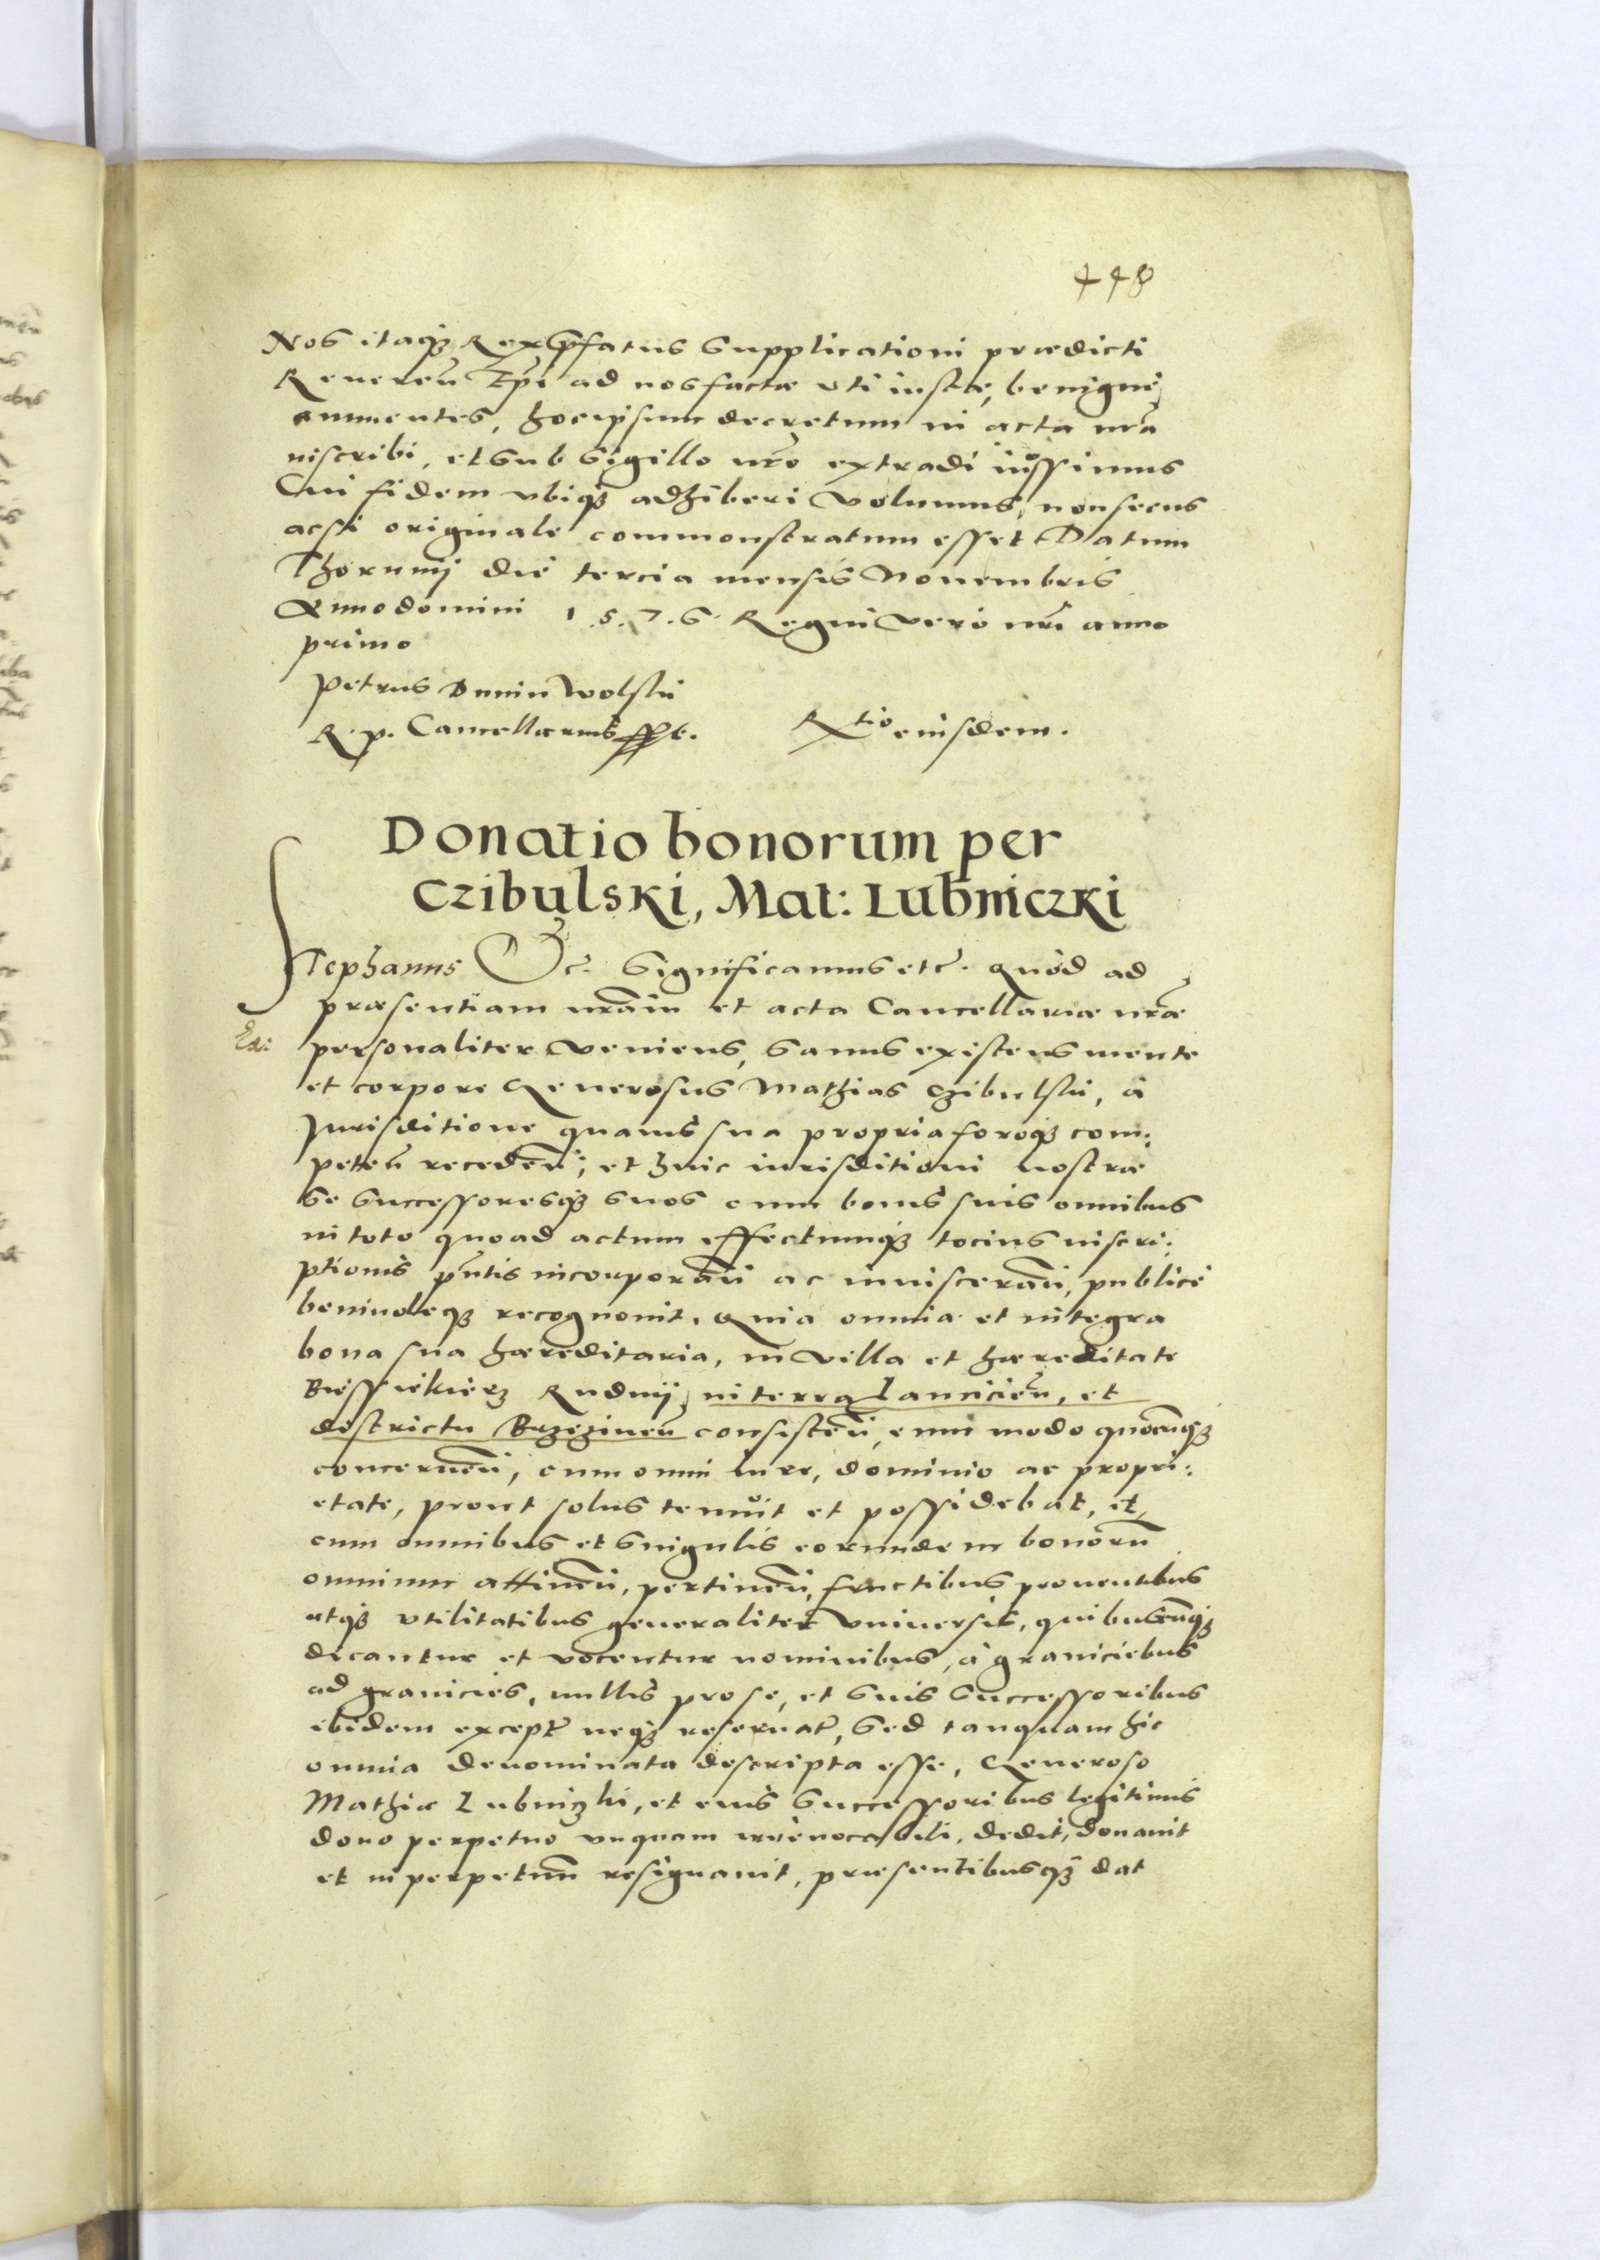 448
Nos itaq₃ Rex p̄fatus supplicationi prædicti
Reueren̄ Ep̄i ad nos factæ vti iustæ, benignè
annuentes, hoc ipsum decretum in acta nr̄a
inscribi, et sub sigillo nr̄o extradi iussimus
Cui fidem vbiq₃ adhiberi volumus, non secus
ac si originale commonstratum esset Datum
Thorunij die tercia mensis Nouembris
Anno domini 1.5.7.6. Regni vero nr̄i anno
primo
Petrus Dunin Wolski
R. p. Cancellarius sst.
Rtio eiusdem.
Donatio bonorum per
Czibulski, Mat: Lubniczki
Stephanus &c. Significamus etc̄. Quòd ad
præsentiam nr̄am et acta Cancellariæ nr̄æ
personaliter veniens, sanus existens mente
et corpore Generosus Mathias Czibulski, à
Jurisditione quauis sua propria foroq₃ com:
peten̄ receden̄, et huic iurisditioni nostræ
se successoresq₃ suos cum bonis suis omnibus
in toto quo ad actum effectumq₃ tocius inscri:
ptionis pn̄tis incorporan̄ ac inuisceran̄, publicè
beniuoleq₃ recognouit. Quia omnia et integra
bona sua hæreditaria, in villa et hæreditate
Biessiekierz Rudnij in terra Lanciciēn, et
districtu Brzezineñ consisten̄, eum modo quocunq₃
concernen̄, cum omni iure, dominio ac propri:
etate, prout solus tenuit et possidebat, et
cum omnibus et singulis eorundem bonorū
omnium attinen̄, pertinen̄, fructibus prouentibus
atq₃ vtilitatibus generaliter vniuersis, quibuscunq₃
dicantur et vocentur nominibus, à graniciebus
ad granicies, nullis pro se, et suis successoribus
ibidem except̄ neq₃ reseruat̄, sed tanquam hic
omnia denominata descripta esse, Generoso
Mathiæ Lubniczki, et eius successoribus legitimis
dono perpetuo vnquam irreuocabili, dedit, donauit
et in perpetuū resignauit, præsentibusq₃ dat